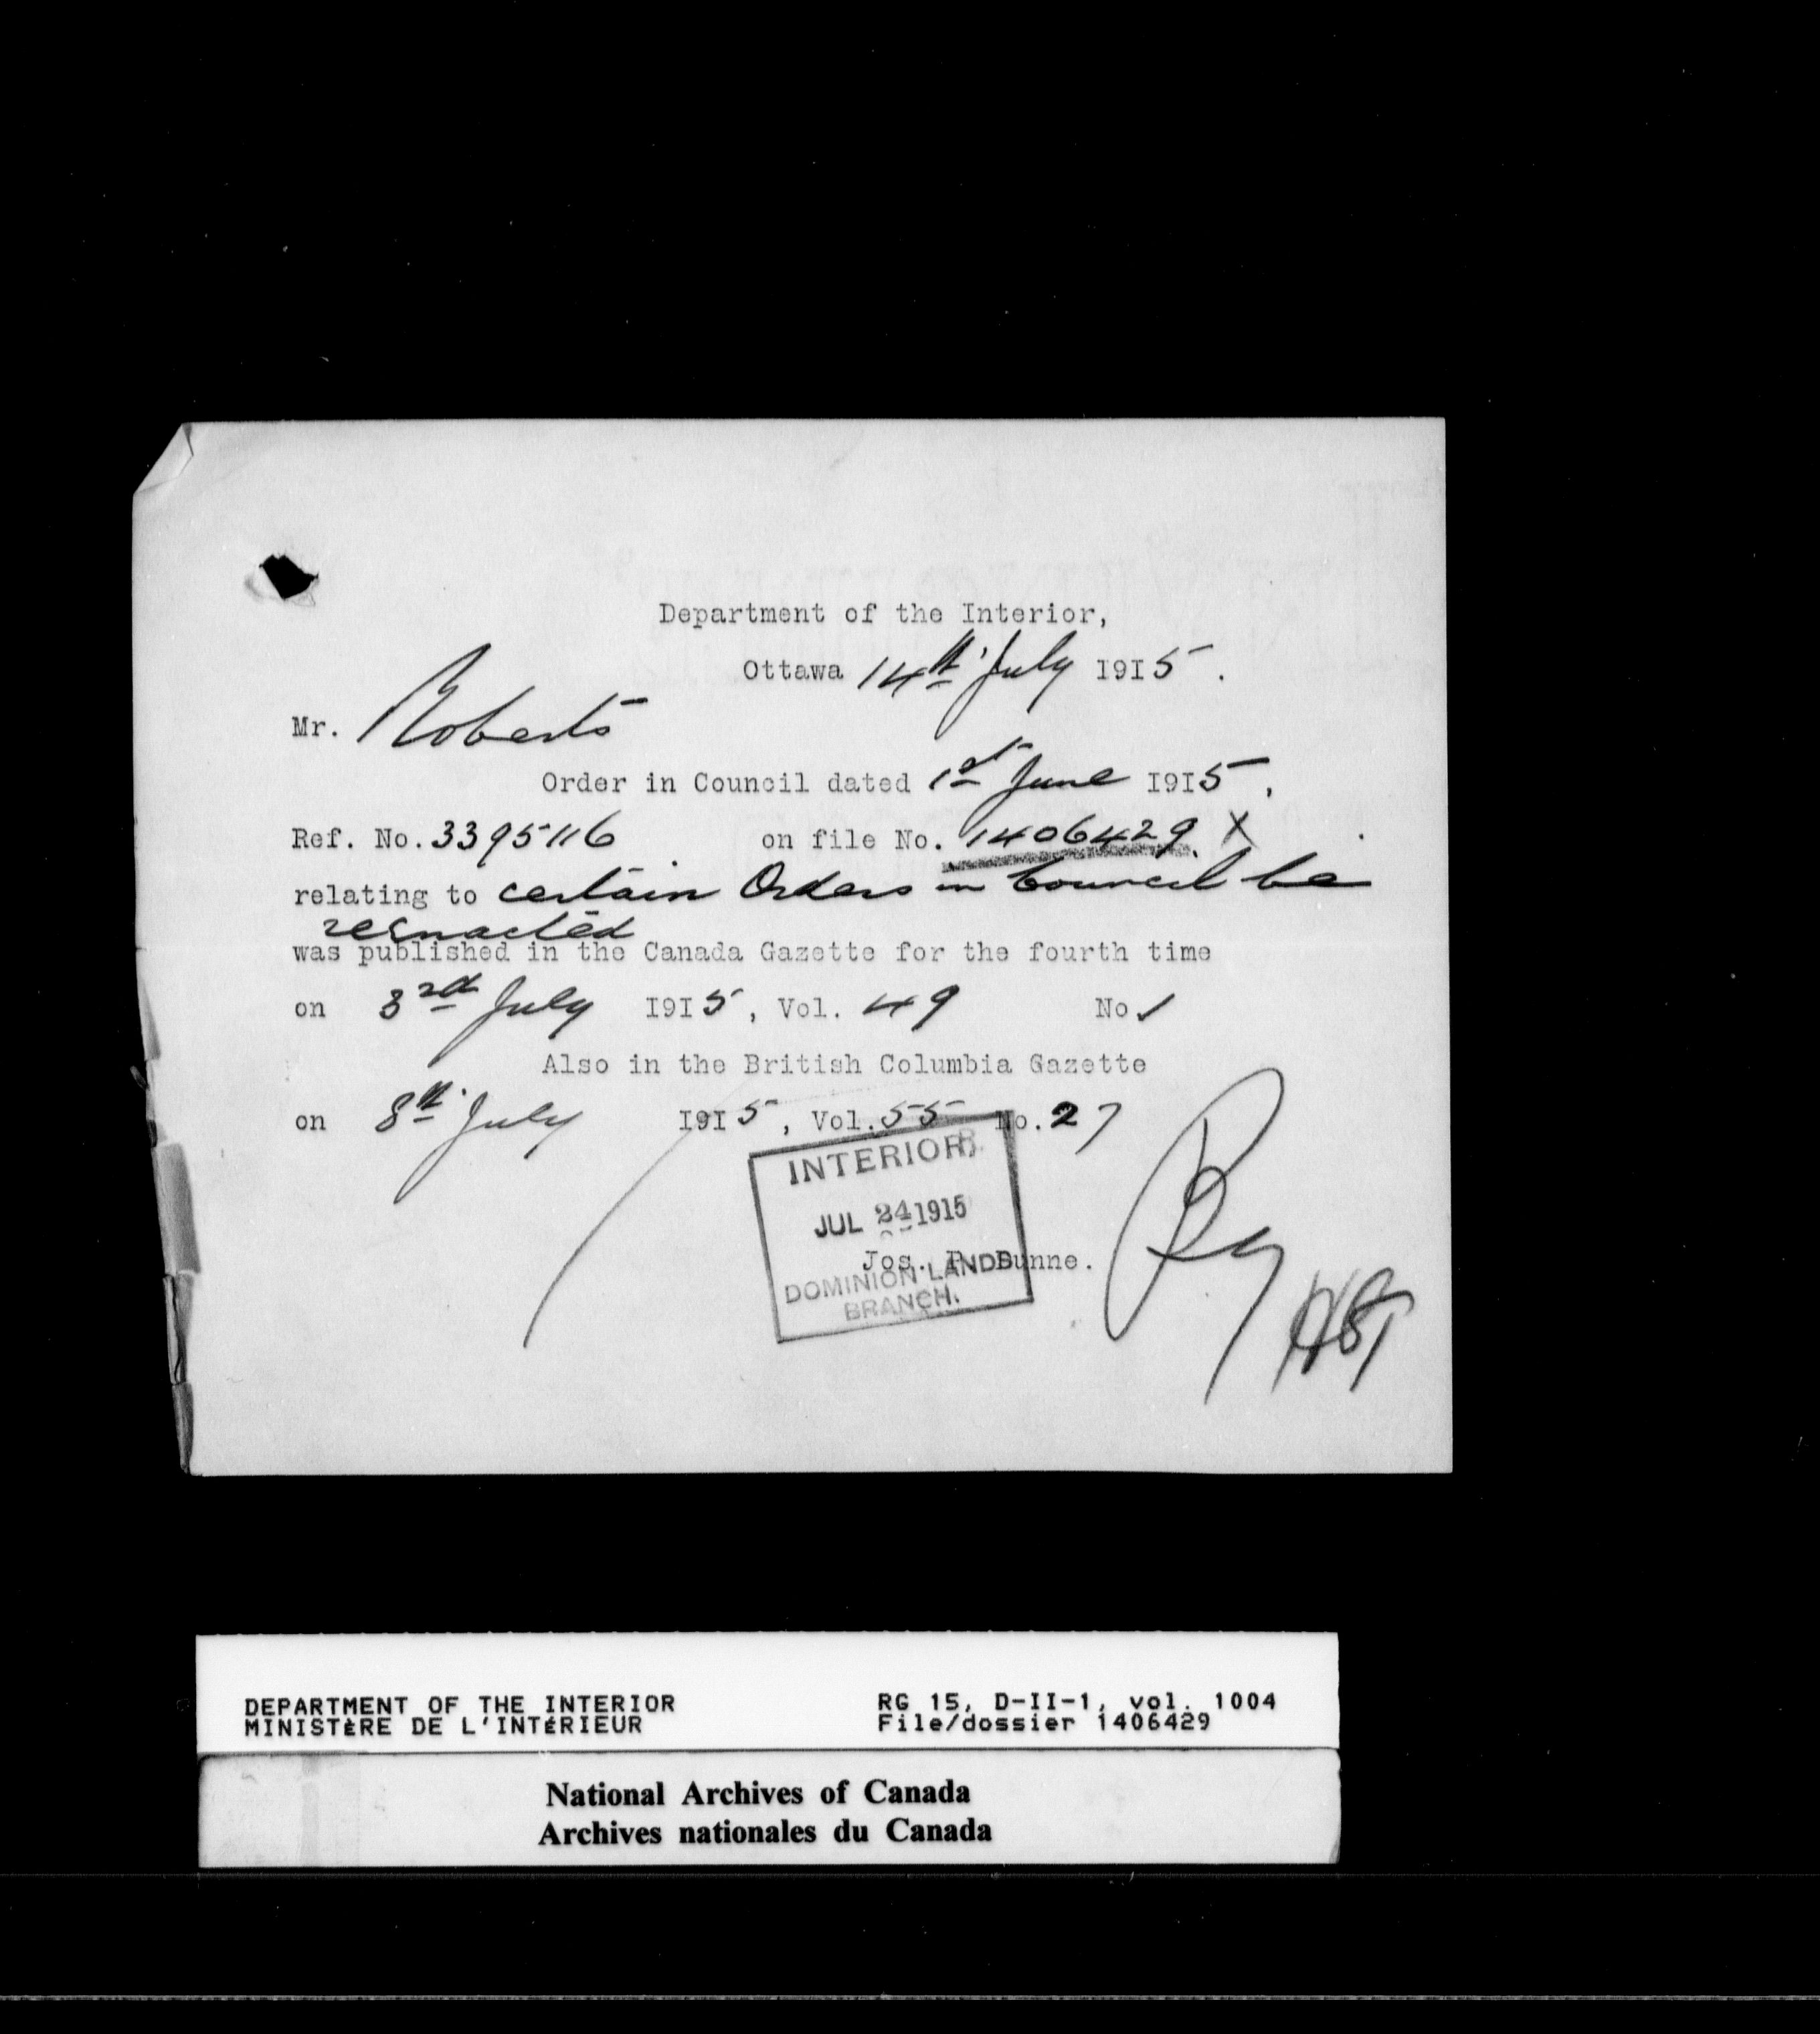 Department of the Interior,
Ottawa 14th July 1915.
Mr. Roberts
Order in Council dated 1st June 1915,
Ref. No. 3395116 on file No. 1406429. X
relating to certain Orders in Council be
reenacted
was published in the Canada Gazette for the fourth time
on 3rd July 1915, Vol. 49 No. 1
Also in the British Columbia Gazette
on 8th July 1915, Vol. 55 No. 27
INTERIOR
JUL 24 1915
Jos. P. Dunne.
DOMINION LANDS
BRANCH.
DEPARTMENT OF THE INTERIOR RG 15, D-II-1, vol. 1004
MINISTÈRE DE L'INTÉRIEUR File/dossier 1406429
National Archives of Canada
Archives nationales du Canada